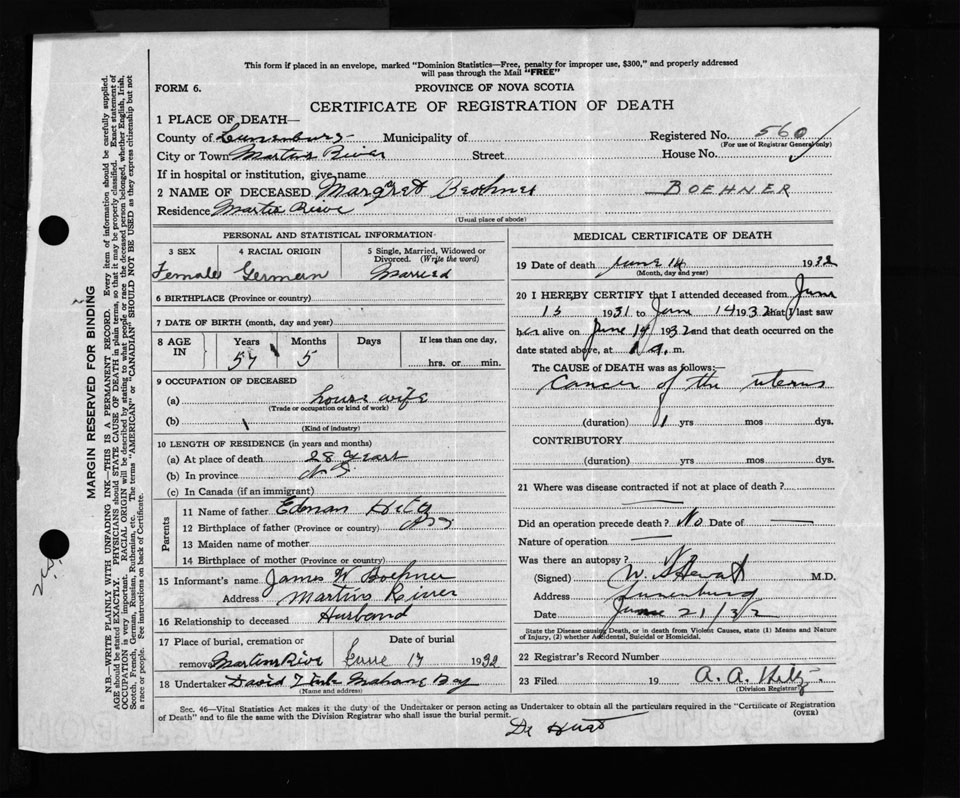 This form if placed in an envelope, marked "Dominion Statistics—Free, penalty for improper use, $300," and properly addressed
will pass through the Mail "FREE"
FORM 6.
PROVINCE OF NOVA SCOTIA
CERTIFICATE OF REGISTRATION OF DEATH
1 PLACE OF DEATH—
County of Lunenburg Municipality of Registered No. 560
(For use of Registrar General only)
City or Town Martins River Street House No.
If in hospital or institution, give name
2 NAME OF DECEASED Margret Boehner BOEHNER
Residence
(Usual place of abode)
PERSONAL AND STATISTICAL INFORMATION
3 SEX 4 RACIAL ORIGIN 5 Single, Married, Widowed or
Divorced. (Write the word)
Female German Married
6 BIRTHPLACE (Province or country)
7 DATE OF BIRTH (month, day and year)
8 AGE IN Years Months Days If less than one day,
57 5 hrs. or min.
9 OCCUPATION OF DECEASED
(a) house wife
(Trade or occupation or kind of work)
(b)
(Kind of industry)
10 LENGTH OF RESIDENCE (in years and months)
(a) At place of death 28 years
(b) In province N S
(c) In Canada (if an immigrant)
Parents
11 Name of father
12 Birthplace of father (Province or country)
13 Maiden name of mother
14 Birthplace of mother (Province or country)
15 Informant's name James W Boehner
Address Martins River
16 Relationship to deceased Husband
17 Place of burial, cremation or Date of burial
removal June 17 1932
18 Undertaker David Mahone Bay
(Name and address)
MEDICAL CERTIFICATE OF DEATH
19 Date of death June 14 1932
(Month, day and year)
20 I HEREBY CERTIFY that I attended deceased from June
15 1931 to June 14 1932 that I last saw
her alive on June 14 1932 and that death occurred on
date stated above, at a. m.
The CAUSE of DEATH was as follows:—
Cancer of the uterus
(duration) 1 yrs mos dys.
CONTRIBUTORY
(duration) yrs mos dys.
21 Where was disease contracted if not at place of death?
Did an operation precede death? No Date of —
Nature of operation —
Was there an autopsy?
(Signed) M.D.
Address Lunenburg
Date June 21/32
State the Disease causing Death, or in death from Violent Causes, state (1) Means and Nature
of Injury, (2) whether Accidental, Suicidal or Homicidal.
22 Registrar's Record Number
23 Filed 19 A. A.
(Division Registrar)
Sec. 46—Vital Statistics Act makes it the duty of the Undertaker or person acting as Undertaker to obtain all the particulars required in the "Certificate of Registration
of Death" and to file the same with the Division Registrar who shall issue the burial permit. (OVER)
MARGIN RESERVED FOR BINDING
N.B.—WRITE PLAINLY WITH UNFADING INK—THIS IS A PERMANENT RECORD. Every item of information should be carefully supplied.
AGE should be stated EXACTLY. PHYSICIANS should STATE CAUSE OF DEATH in plain terms, so that it may be properly classified. Exact statement of
OCCUPATION is very important. RACIAL ORIGIN will be described by stating to what people or race the deceased person belonged, whether English, Irish,
Scotch, French, German, Russian, Ruthenian, etc. The terms "AMERICAN" or "CANADIAN" SHOULD NOT BE USED as they express citizenship but not
a race or people. Fee instructions on back of Certificate.